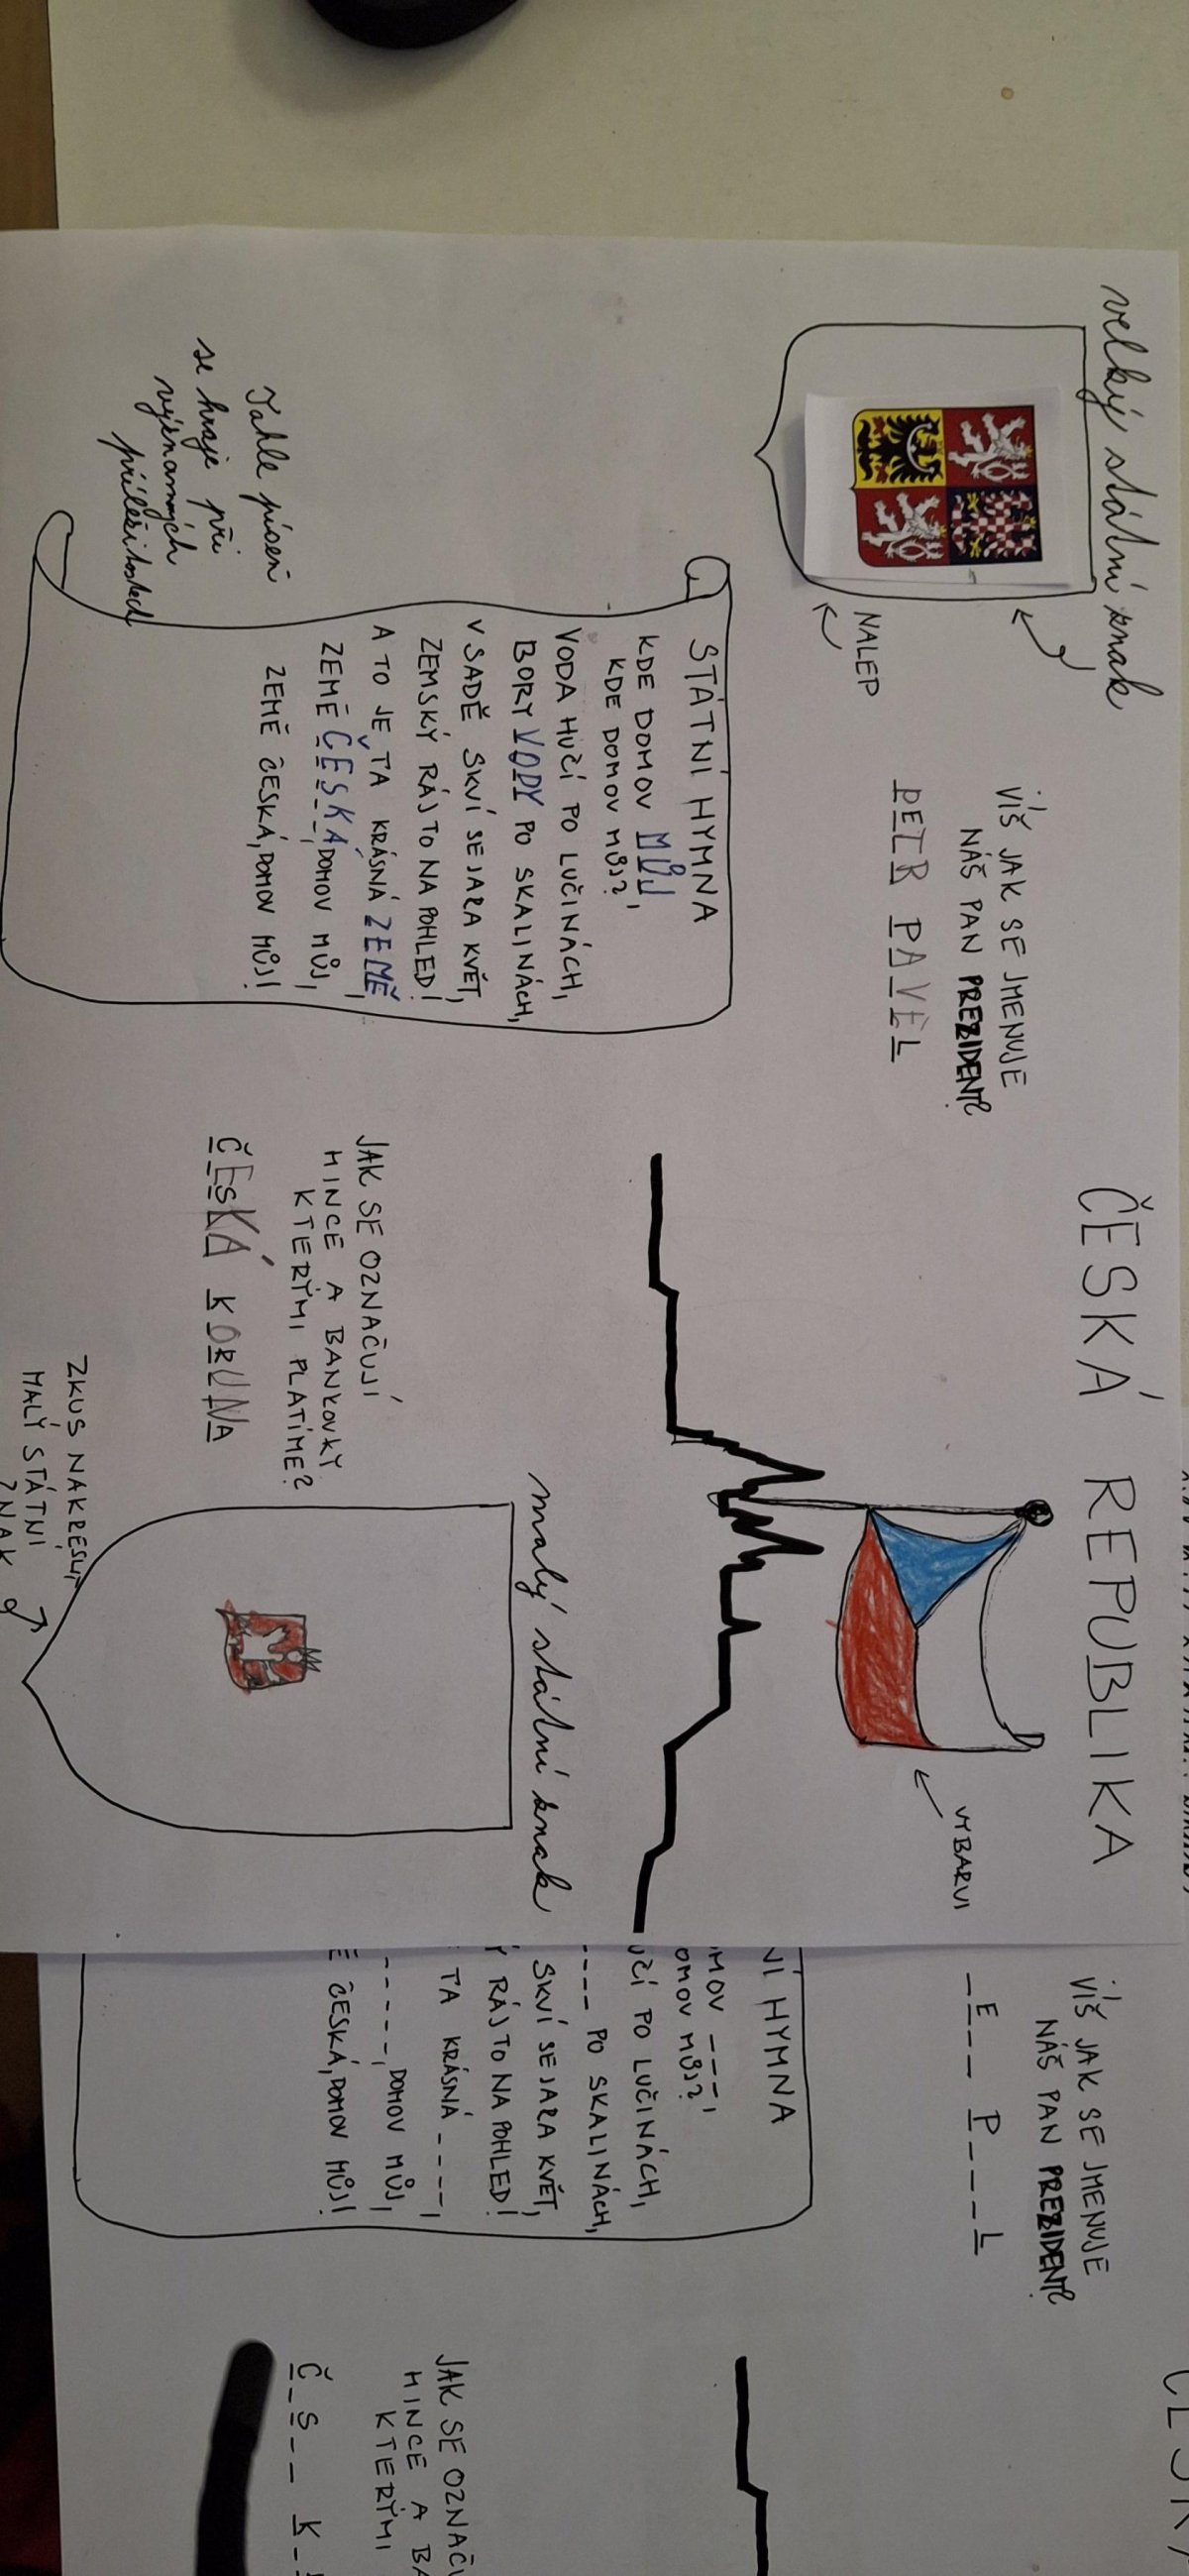 ČESKÁ REPUBLIKA
velký státní znak
NALEP
VÍŠ JAK SE JMENUJE
NÁŠ PAN PREZIDENT?
PETR PAVEL
VYBARVI
STÁTNÍ HYMNA
KDE DOMOV MŮJ,
KDE DOMOV MŮJ?
VODA HUČÍ PO LUČINÁCH,
BORY VODY PO SKALINÁCH,
V SADĚ SKVÍ SE JARA KVĚT,
ZEMSKÝ RÁJ TO NA POHLED!
A TO JE TA KRÁSNÁ ZEMĚ,
ZEMĚ ČESKÁ, DOMOV MŮJ,
ZEMĚ ČESKÁ, DOMOV MŮJ!
Tahle píseň
se hraje při
významných
příležitostech
JAK SE OZNAČUJÍ
MINCE A BANKOVKY
KTERÝMI PLATÍME?
ČESKÁ KORUNA
malý státní znak
ZKUS NAKRESLIT
MALÝ STÁTNÍ
ZNAK
VÍŠ JAK SE JMENUJE
NÁŠ PAN PREZIDENT?
_E__ P___L
NÍ HYMNA
OMOV ___,
OMOV MŮJ?
UČÍ PO LUČINÁCH,
____ PO SKALINÁCH,
SKVÍ SE JARA KVĚT,
Ý RÁJ TO NA POHLED!
TA KRÁSNÁ ____,
_____, DOMOV MŮJ,
Ě ČESKÁ, DOMOV MŮJ!
JAK SE OZNAČU
MINCE A BA
KTERÝMI
Č_S__ K_